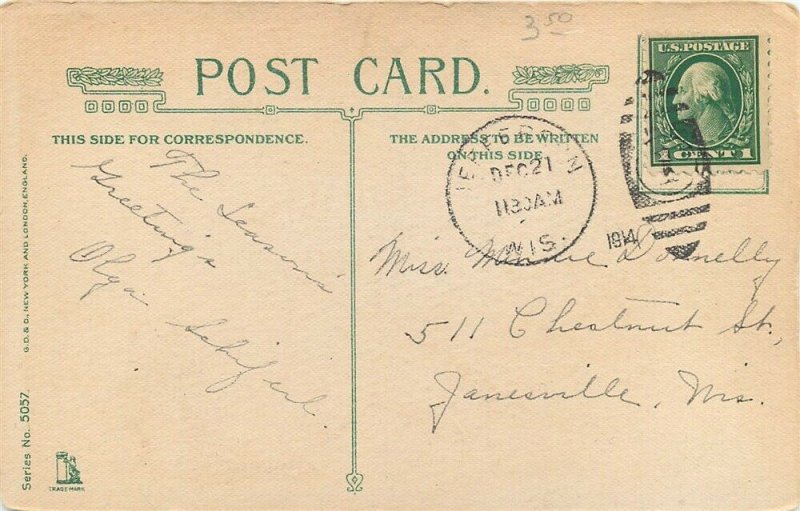 3.50
POST CARD.
U.S. POSTAGE
1 CENT 1
THIS SIDE FOR CORRESPONDENCE.
THE ADDRESS TO BE WRITTEN
ON THIS SIDE.
JEFFERSON
DEC 21
1130AM
WIS.
1914
The Seasons'
Greetings
Olga Schiferl.
Miss. Minnie Donnelly
511 Chestnut St.,
Janesville, Wis.
G.D. & D., NEW YORK AND LONDON, ENGLAND.
Series No. 5057.
TRADE MARK